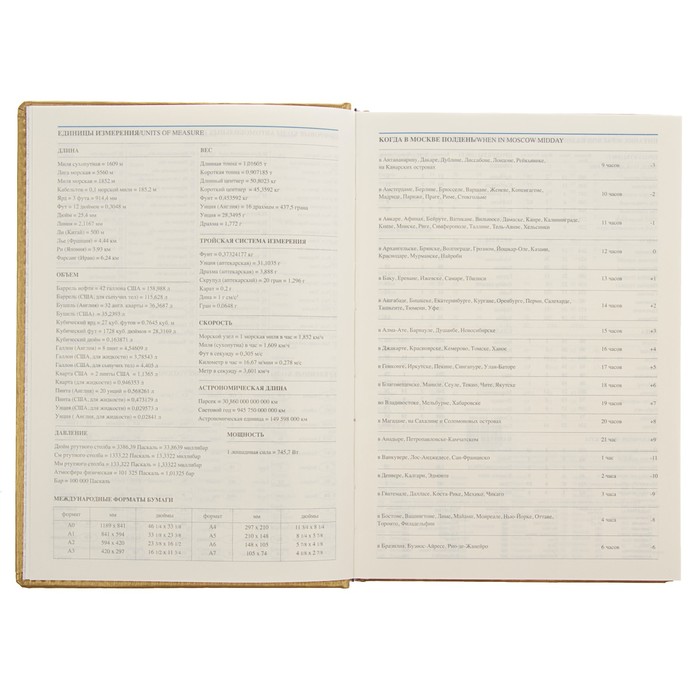 ЕДИНИЦЫ ИЗМЕРЕНИЯ/UNITS OF MEASURE
ДЛИНА
Миля сухопутная = 1609 м
Лига морская = 5560 м
Миля морская = 1852 м
Кабельтов = 0,1 морской мили = 185,2 м
Ярд = 3 фута = 914,4 мм
Фут = 12 дюймов = 0,3048 м
Дюйм = 25,4 мм
Линия = 2,1167 мм
Ли (Китай) = 500 м
Лье (Франция) = 4,44 км
Ри (Япония) = 3,93 км
Фарсанг (Иран) = 6,24 км
ОБЪЕМ
Баррель нефти = 42 галлона США = 158,988 л
Баррель (США, для сыпучих тел) = 115,628 л
Бушель (Англия) = 32 англ. кварты = 36,3687 л
Бушель (США) = 35,2393 л
Кубический ярд = 27 куб. футов = 0,7645 куб. м
Кубический фут = 1728 куб. дюймов = 28,3168 л
Кубический дюйм = 0,163871 л
Галлон (Англия) = 8 пинт = 4,54609 л
Галлон (США, для жидкости) = 3,78543 л
Галлон (США, для сыпучих тел) = 4,405 л
Кварта (США) = 2 пинты США = 1,1365 л
Кварта (для жидкости) = 0,946353 л
Пинта (Англия) = 20 унций = 0,568261 л
Пинта (США, для жидкости) = 0,473179 л
Унция (США, для жидкости) = 0,029573 л
Унция ( Англия, для жидкости) = 0,02841 л
ДАВЛЕНИЕ
Дюйм ртутного столба = 3386,39 Паскаль = 33,8639 миллибар
См ртутного столба = 1333,22 Паскаль = 13,3322 миллибар
Мм ртутного столба = 133,322 Паскаль = 1,33322 миллибар
Атмосфера физическая = 101 325 Паскаль = 1,01325 бар
Бар = 100 000 Паскаль
ВЕС
Длинная тонна = 1,01605 т
Короткая тонна = 0,907185 т
Длинный центнер = 50,8023 кг
Короткий центнер = 45,3592 кг
Фунт = 0,453592 кг
Унция (Англия) = 16 драхмам = 437,5 грана
Унция = 28,3495 г
Драхма = 1,772 г
ТРОЙСКАЯ СИСТЕМА ИЗМЕРЕНИЯ
Фунт = 0,37324177 кг
Унция (аптекарская) = 31,1035 г
Драхма (аптекарская) = 3,888 г
Скрупул (аптекарский) = 20 гран = 1,296 г
Карат = 0,2 г
СКОРОСТЬ
Морской узел = 1 морская миля в час = 1,852 км/ч
Миля (сухопутная) в час = 1,609 км/ч
Фут в секунду = 0,305 м/с
Километр в час = 16,67 м/мин = 0,278 м/с
Метр в секунду = 3,601 км/ч
АСТРОНОМИЧЕСКАЯ ДЛИНА
Парсек = 30,860 000 000 000 км
Световой год = 945 750 000 000 км
Астрономическая единица = 149 598 000 км
МОЩНОСТЬ
1 лошадиная сила = 745,7 Вт
МЕЖДУНАРОДНЫЕ ФОРМАТЫ БУМАГИ
формат мм дюймы формат мм дюймы
A0 1189 x 841 A4 297 x 210
A1 841 x 594 A5 210 x 148
A2 594 x 420 A6 148 x 105
A3 420 x 297 A7 105 x 74
КОГДА В МОСКВЕ ПОЛДЕНЬ/WHEN IN MOSCOW MIDDAY
в Антананариву, Дакаре, Дублине, Лиссабоне, Лондоне, Рейкьявике,
на Канарских островах 9 часов -3
в Амстердаме, Берлине, Брюсселе, Варшаве, Женеве, Копенгагене,
Мадриде, Париже, Праге, Риме, Стокгольме 10 часов -2
в Анкаре, Афинах, Бейруте, Ватикане, Вильнюсе, Дамаске, Каире, Калининграде,
Киеве, Минске, Риге, Симферополе, Таллине, Тель-Авиве, Хельсинки 11 часов -1
в Архангельске, Брянске, Волгограде, Грозном, Йошкар-Оле, Казани,
Краснодаре, Мурманске, Найроби 12 часов
в Баку, Ереване, Ижевске, Самаре, Тбилиси 13 часов +1
в Ашгабаде, Бишкеке, Екатеринбурге, Кургане, Оренбурге, Перми, Салехарде,
Ташкенте, Тюмени, Уфе 14 часов +2
в Алма-Ате, Барнауле, Душанбе, Новосибирске 15 часов +3
в Джакарте, Красноярске, Кемерово, Томске, Ханое 16 часов +4
в Гонконге, Иркутске, Пекине, Сингапуре, Улан-Баторе 17 часов +5
в Благовещенске, Маниле, Сеуле, Токио, Чите, Якутске 18 часов +6
во Владивостоке, Мельбурне, Хабаровске 19 часов +7
в Магадане, на Сахалине и Соломоновых островах 20 часов +8
в Анадыре, Петропавловске-Камчатском 21 час +9
в Ванкувере, Лос-Анджелесе, Сан-Франциско 1 час
в Денвере, Калгари, Эдмонтон 2 часа -10
в Гватемале, Далласе, Коста-Рике, Мехико, Чикаго 3 часа
в Бостоне, Вашингтоне, Лиме, Майами, Монреале, Нью-Йорке, Оттаве,
Торонто, Филадельфии 4 часа
в Бразилиа, Буэнос-Айресе, Рио-де-Жанейро 6 часов -6